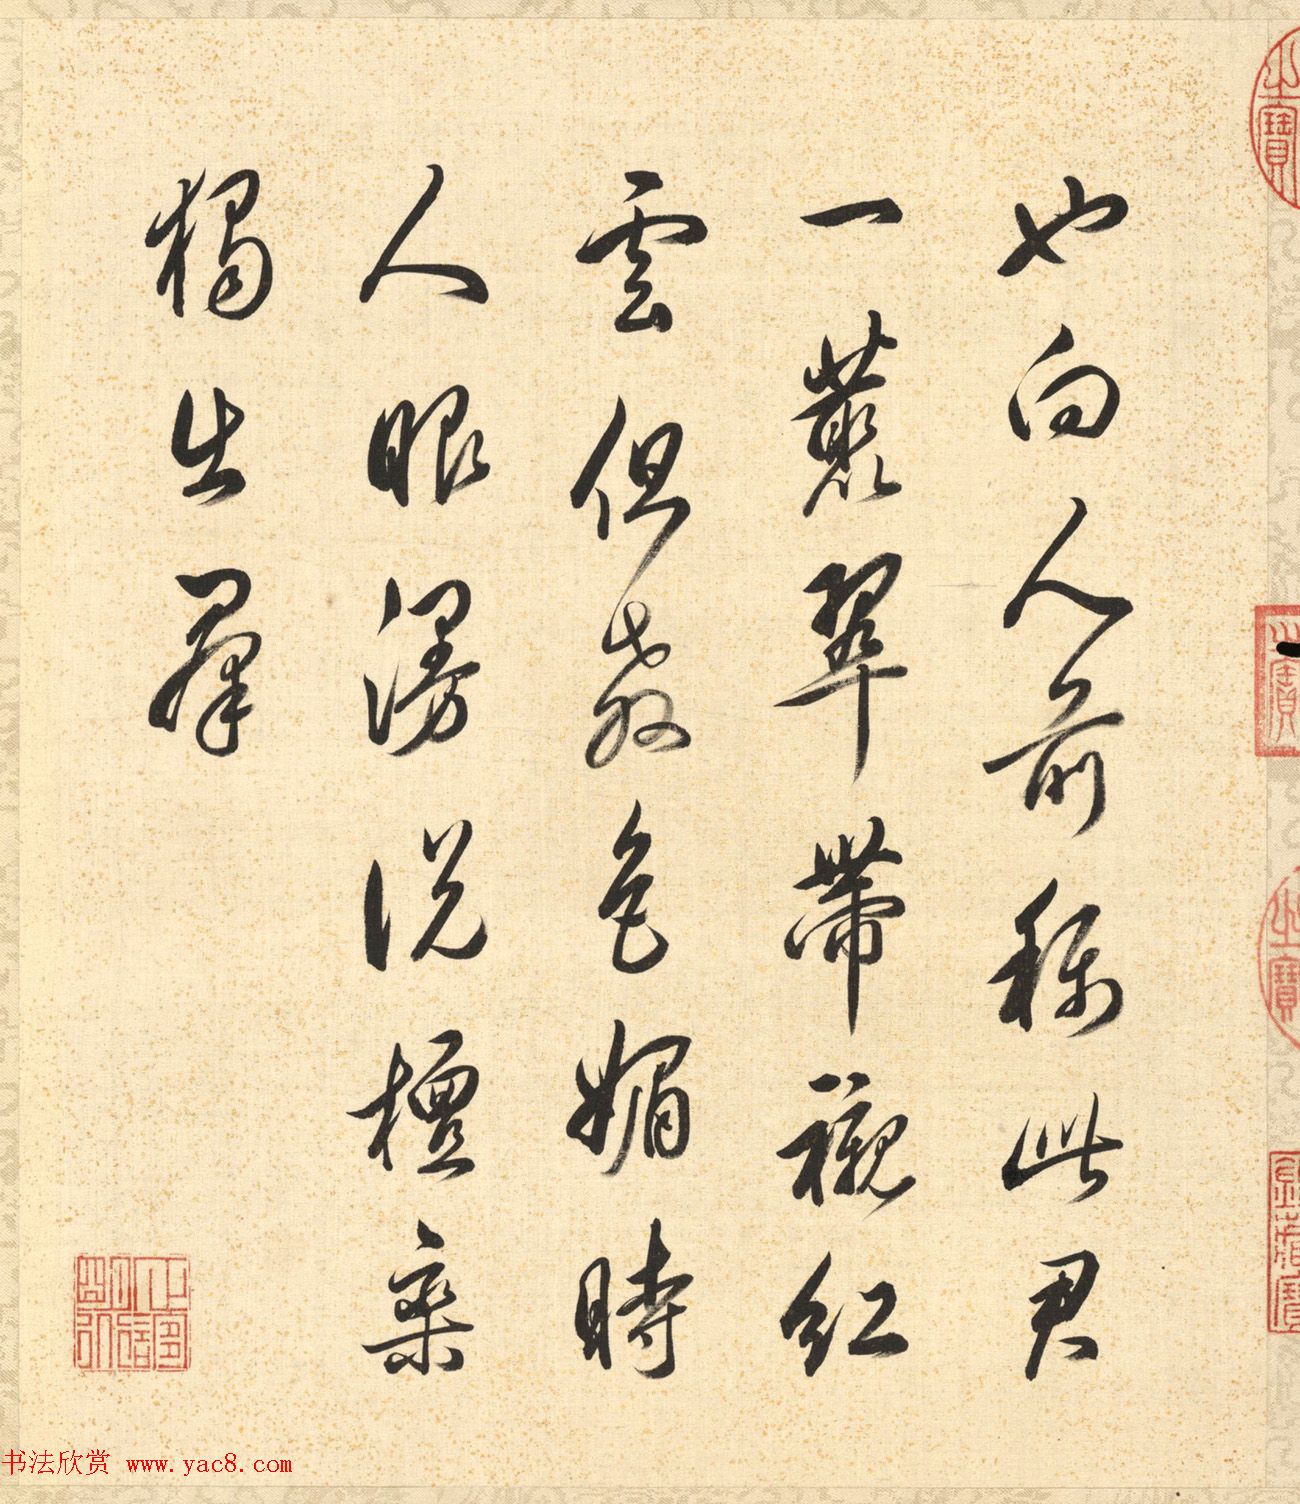 也向人前稱此君
一叢翠帶襯紅
雲但教色媚時
人眼漫說檀欒
獨出羣
之寶
之寶
之寶
书法欣赏 www.yac8.com